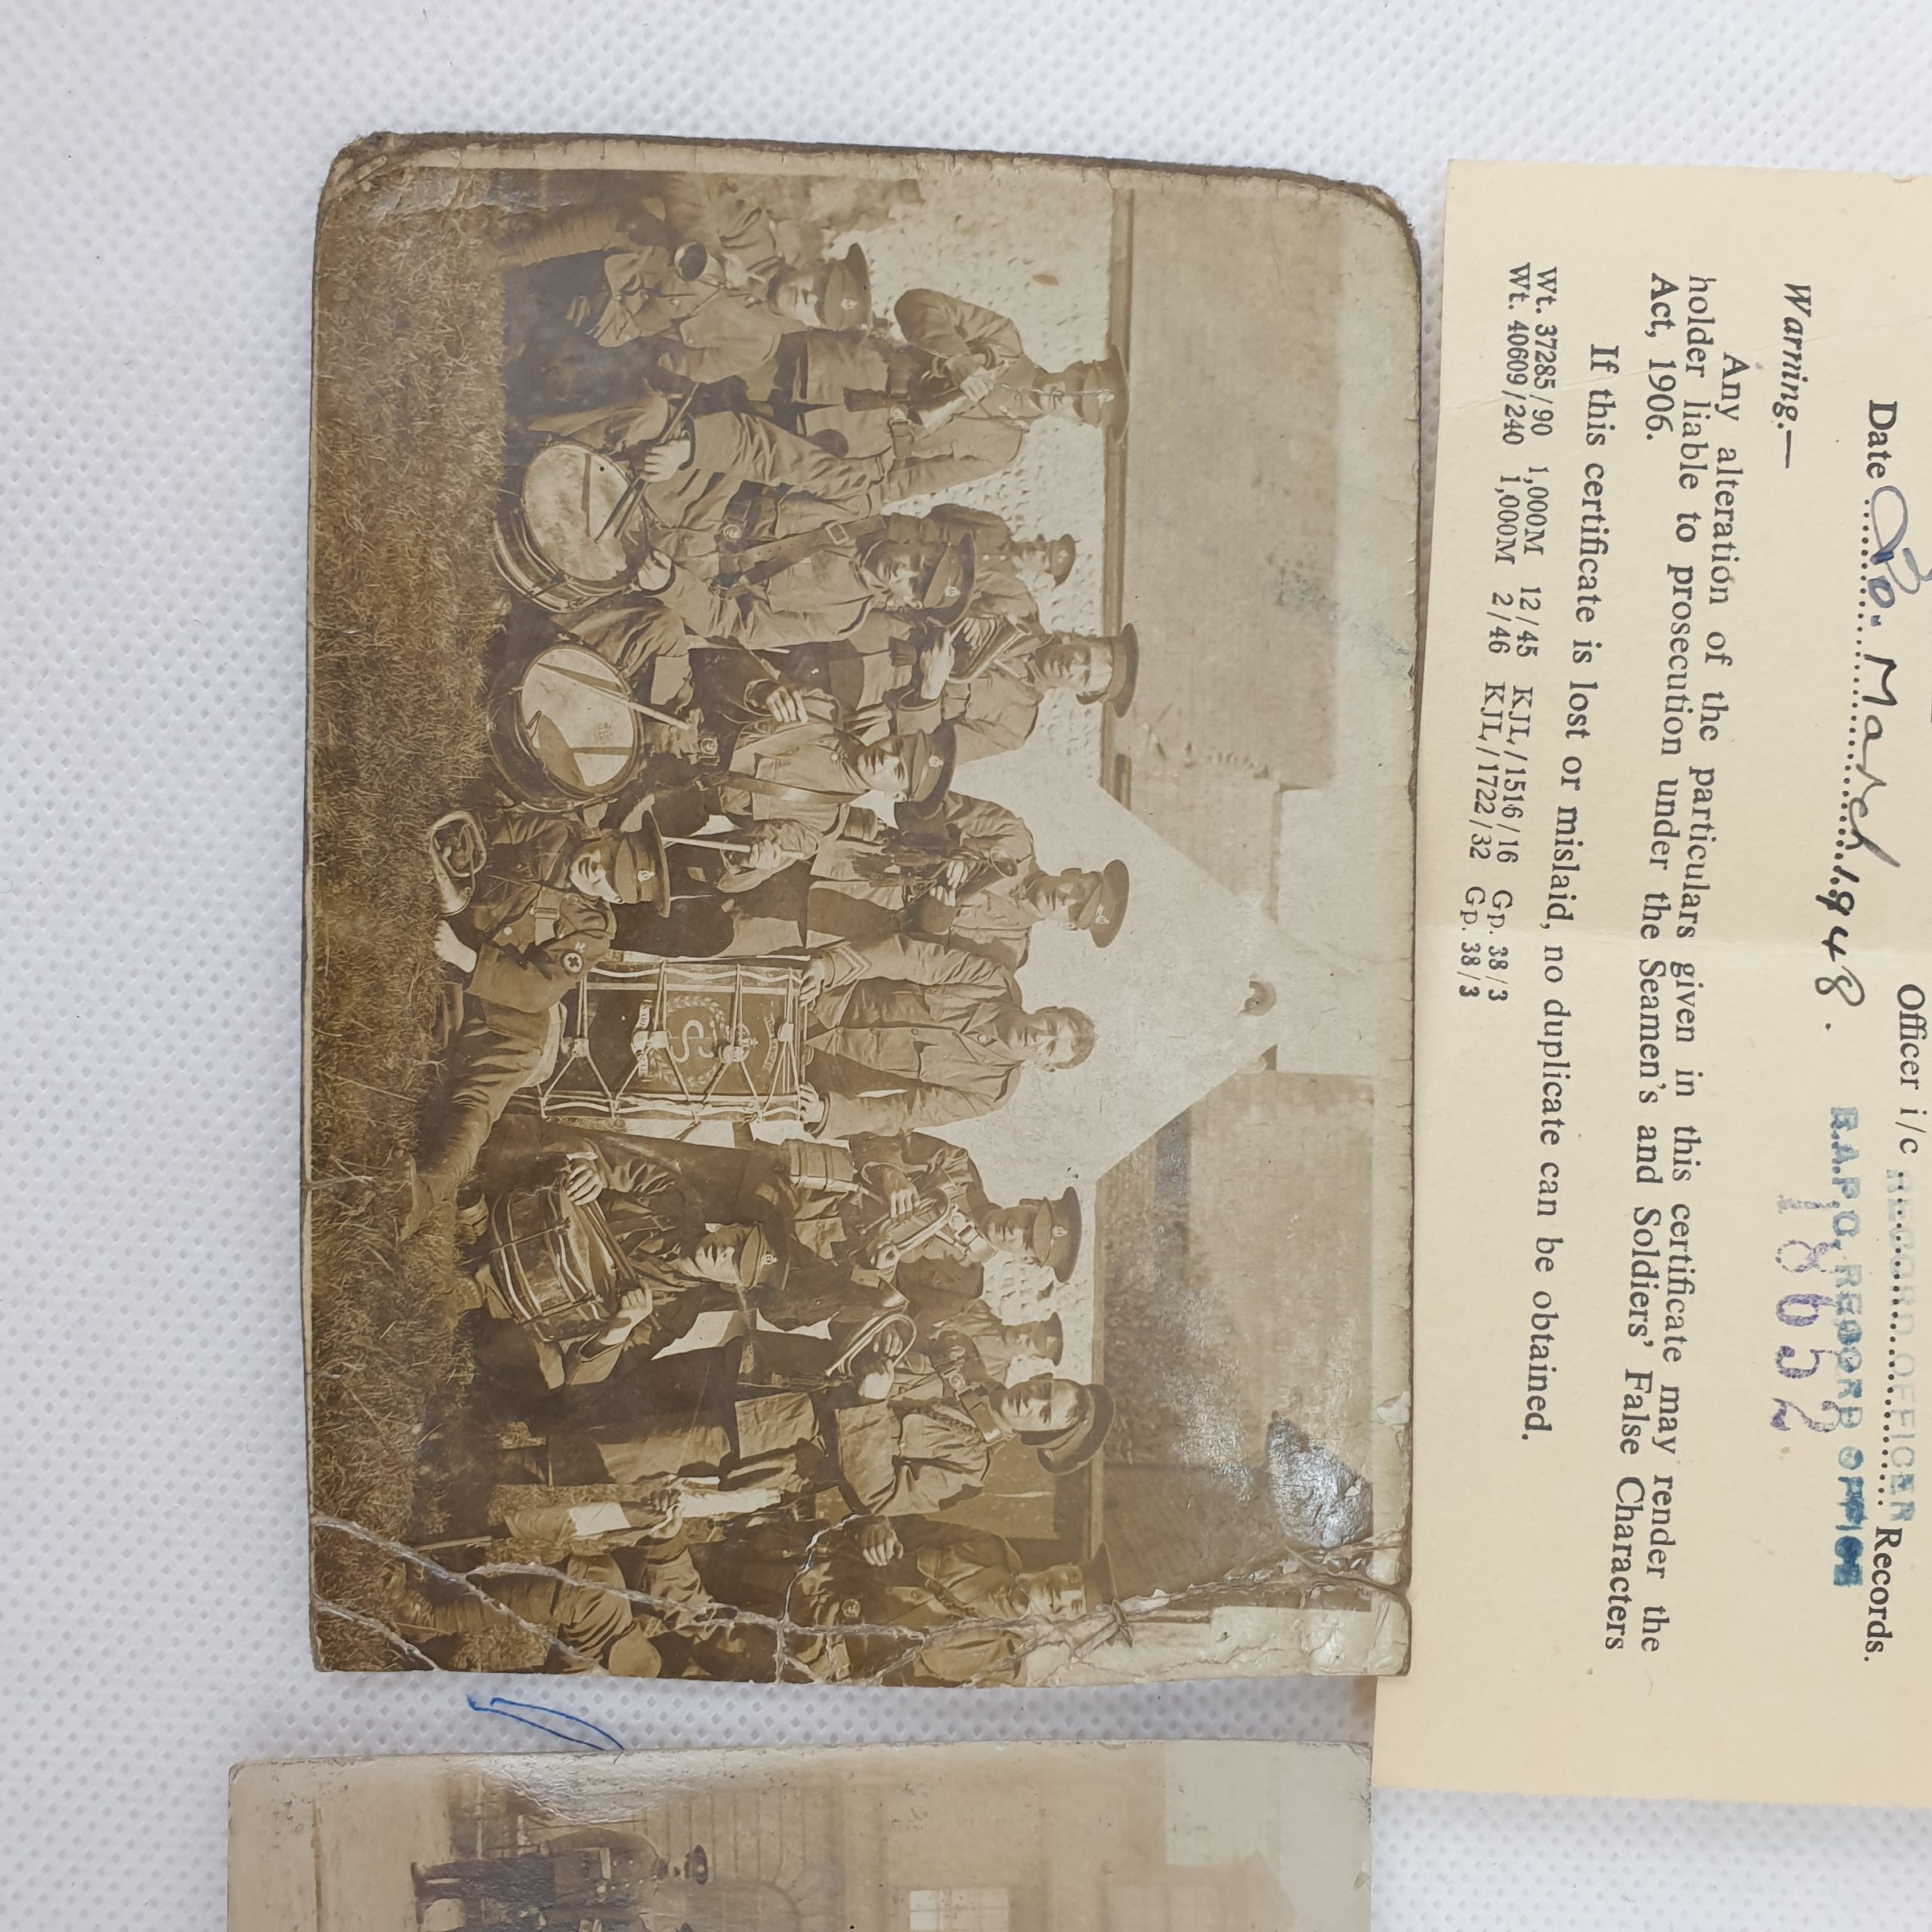 Officer i/c RECORD OFFICER Records.
R.A.P.C. RECORD OFFICE
Date 30. March 1948.
18652
Warning.—
Any alteration of the particulars given in this certificate may render the
holder liable to prosecution under the Seamen's and Soldiers' False Characters
Act, 1906.
If this certificate is lost or mislaid, no duplicate can be obtained.
Wt. 37285/90 1,000M 12/45 KJL/1516/16 Gp. 38/3
Wt. 40609/240 1,000M 2/46 KJL/1722/32 Gp. 38/3